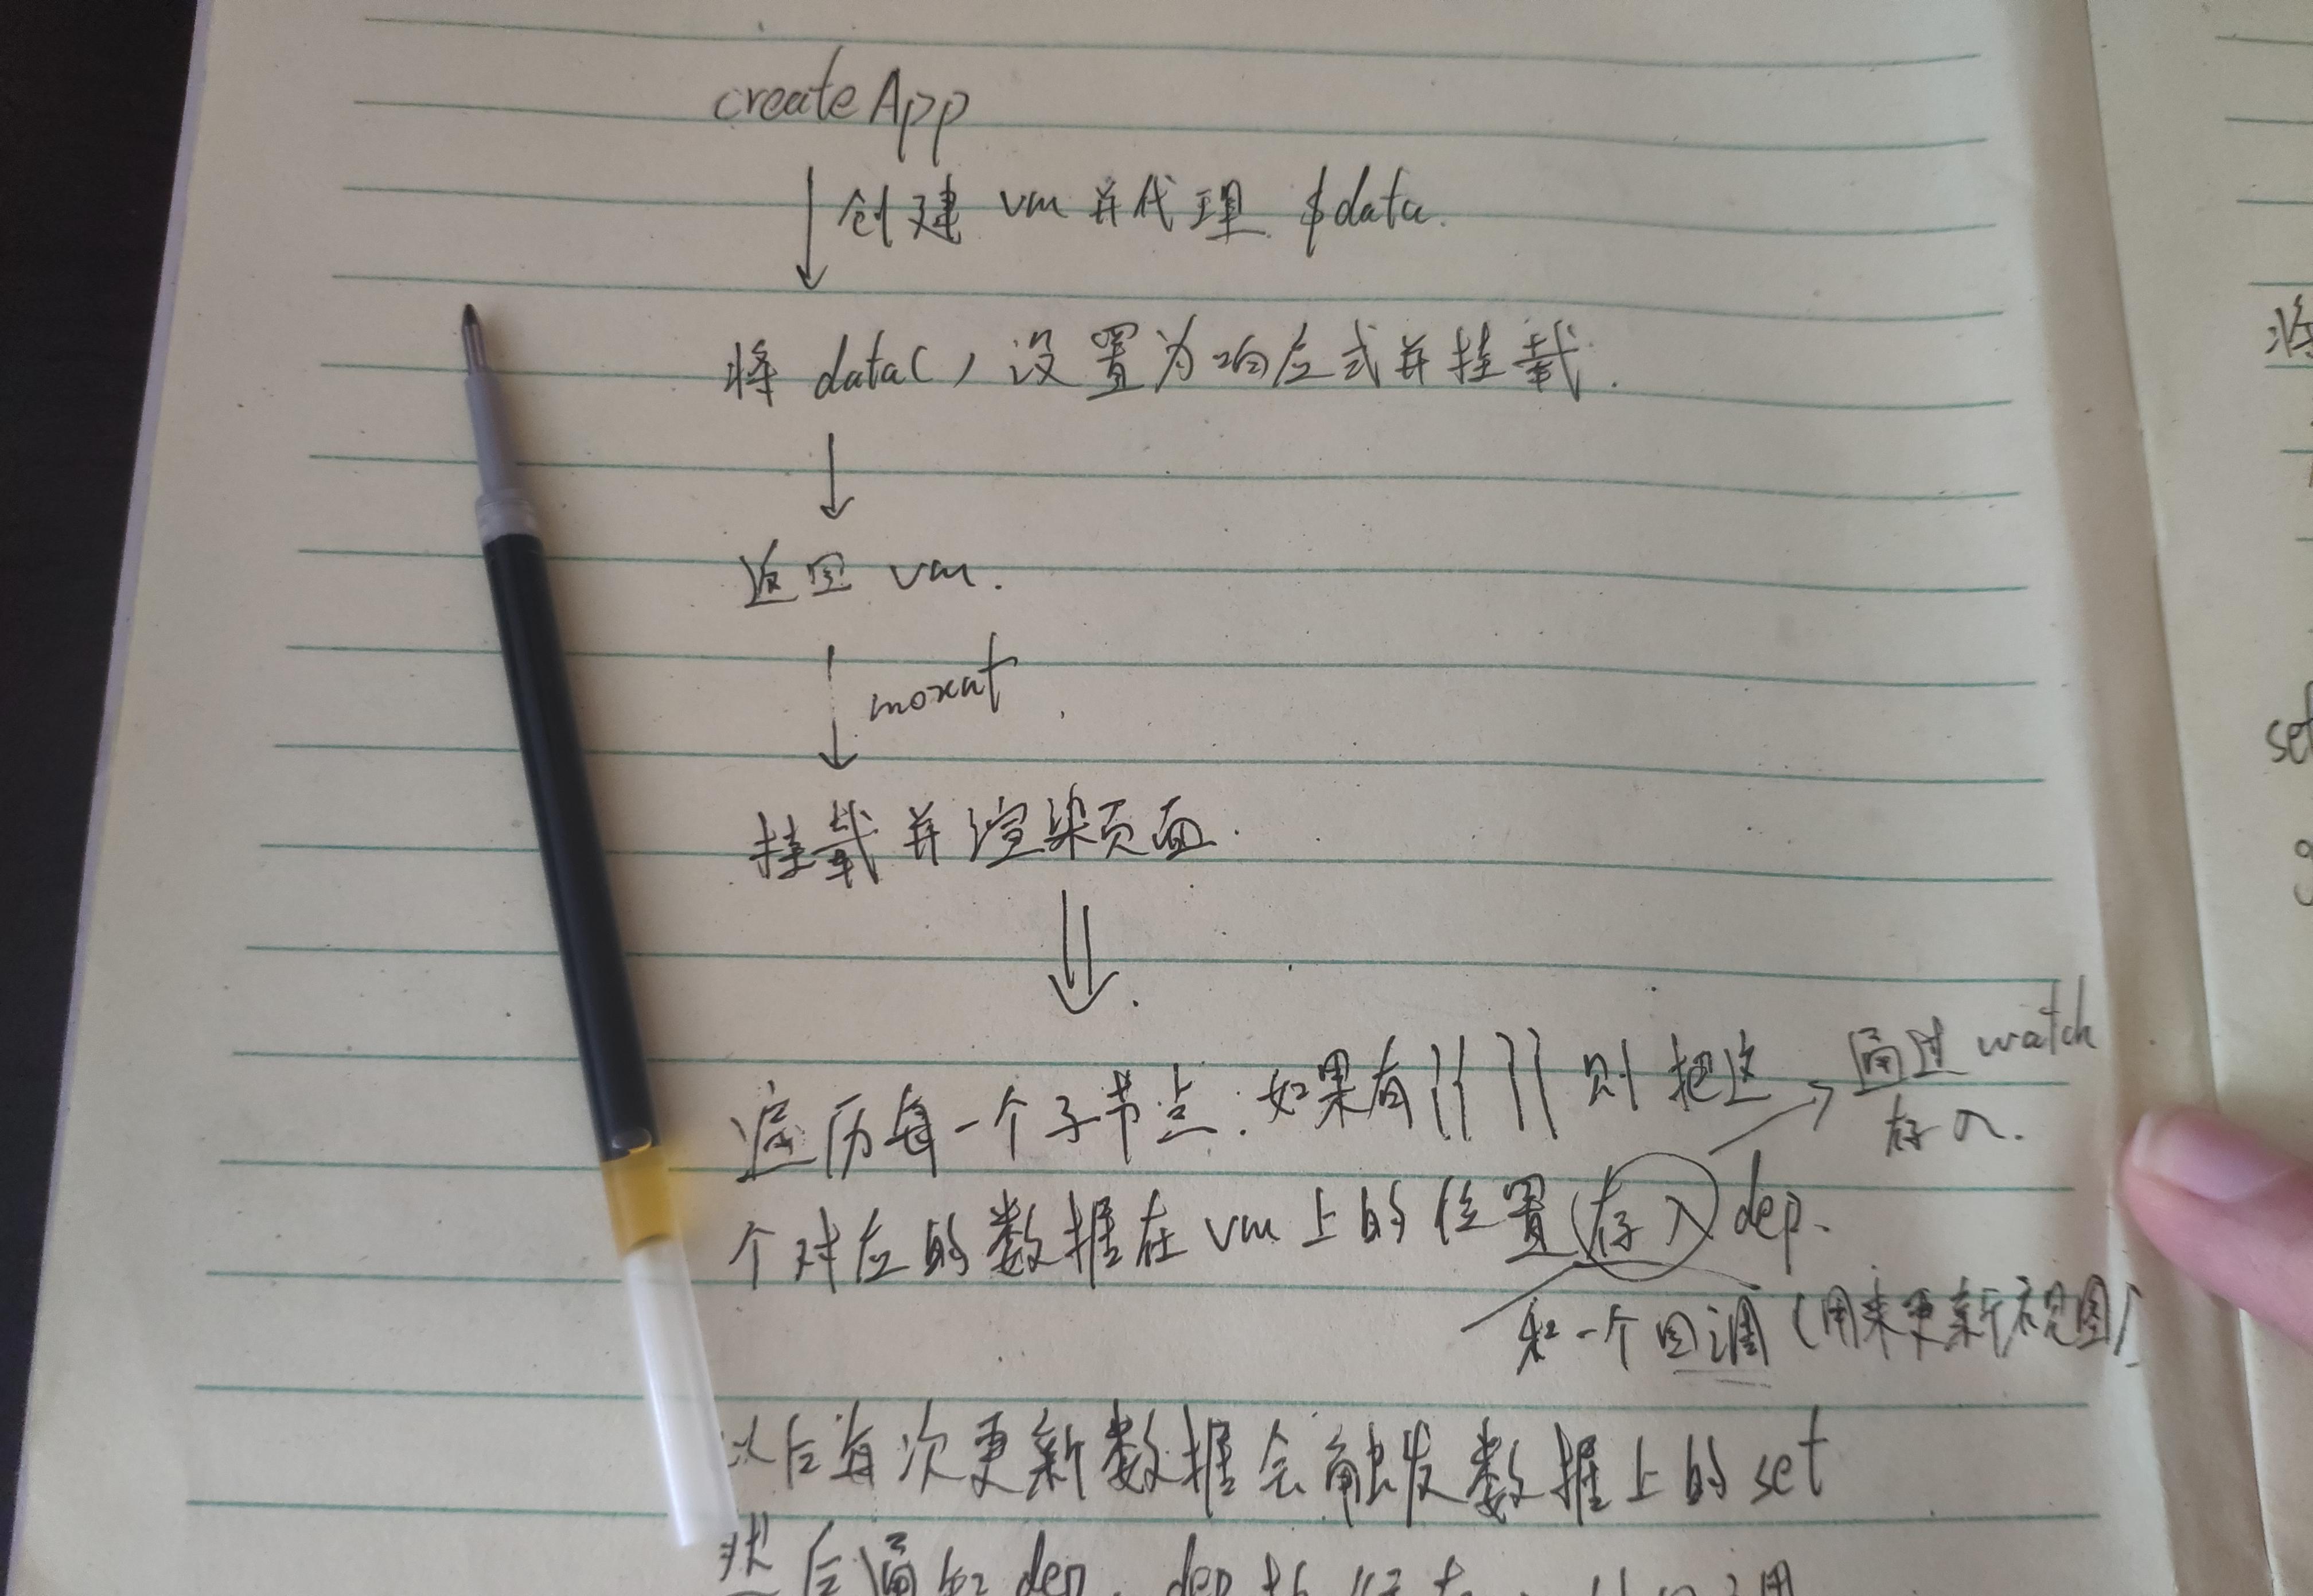 createApp
创建 vm 并代理 $data.
将 data() 设置为响应式并挂载.
返回 vm.
挂载并渲染页面.
遍历每一个子节点.如果有{{ }}则把这
通过watch
存入.
个对应的数据在vm上的位置存入dep.
和一个回调(用来更新视图)
以后每次更新数据会触发数据上的set
然后通知dep.
将
set